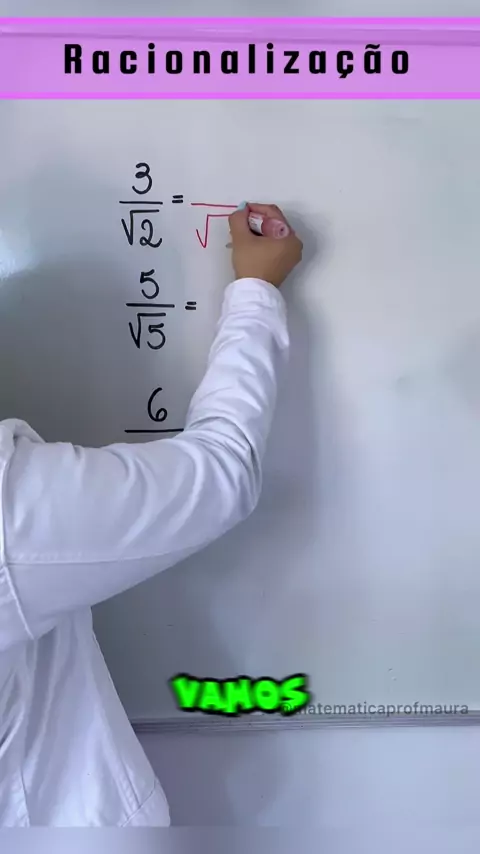 Racionalização
3
√2 =
5
√5 =
6
VAMOS
matematicaprofmaura